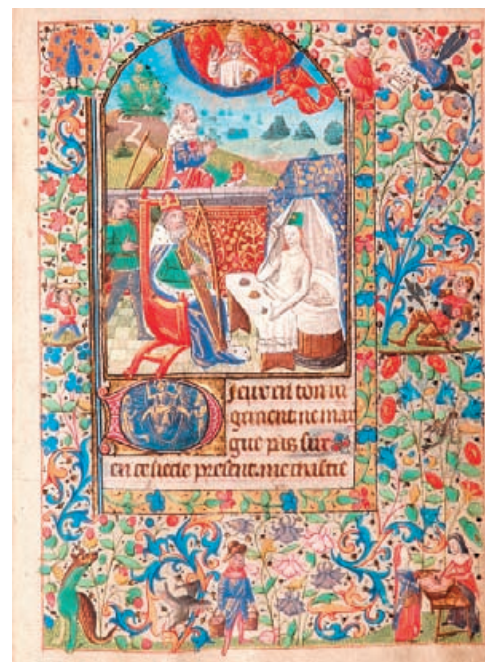 Dieu en ton iu
gement ne mar
gue pas
en ce siecle present. me chastie